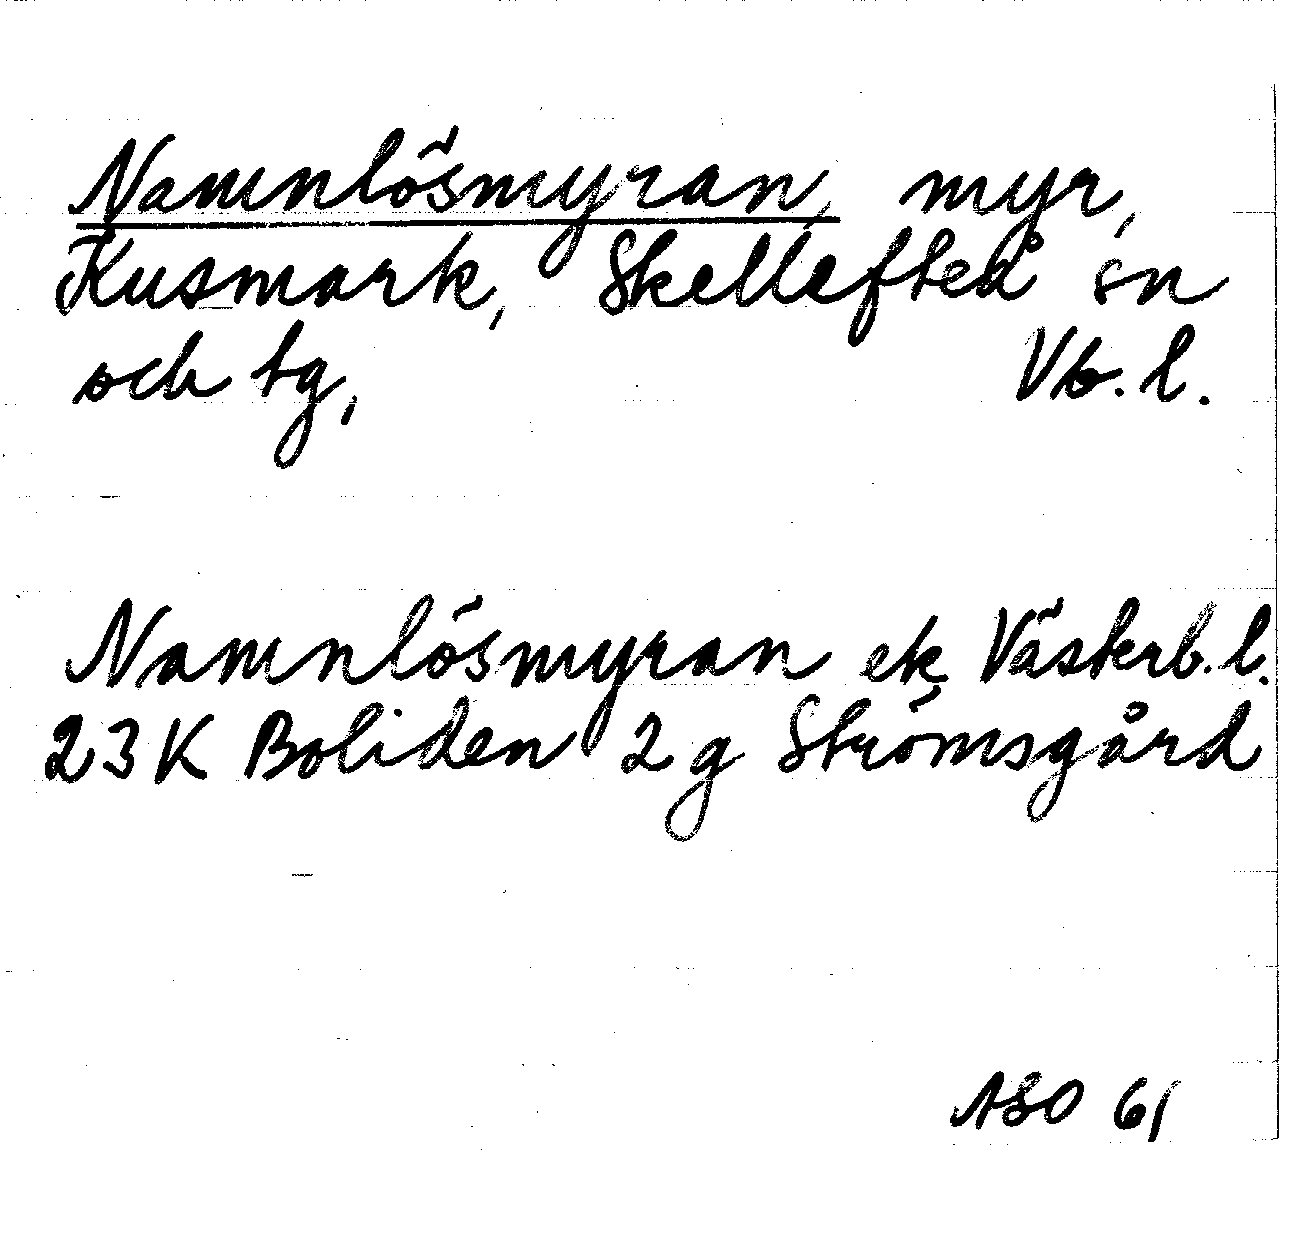 Namnlösmyran, myr,
Kusmark, Skellefteå sn
och tg, Vb. l.
Namnlösmyran ek Västerb. l.
23K Boliden 2g Strömsgård
ASO 61